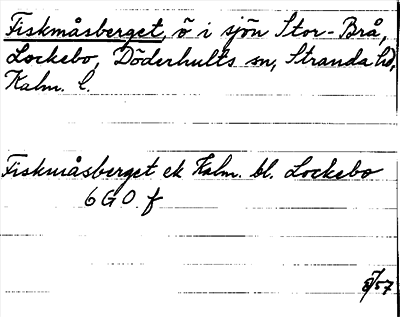 Fiskmåsberget, ö i sjön Stor-Brå,
Lockebo, Döderhults sn, Stranda hd,
Kalm. l.
Fiskmåsberget ek Kalm. bl. Lockebo
6 G O f